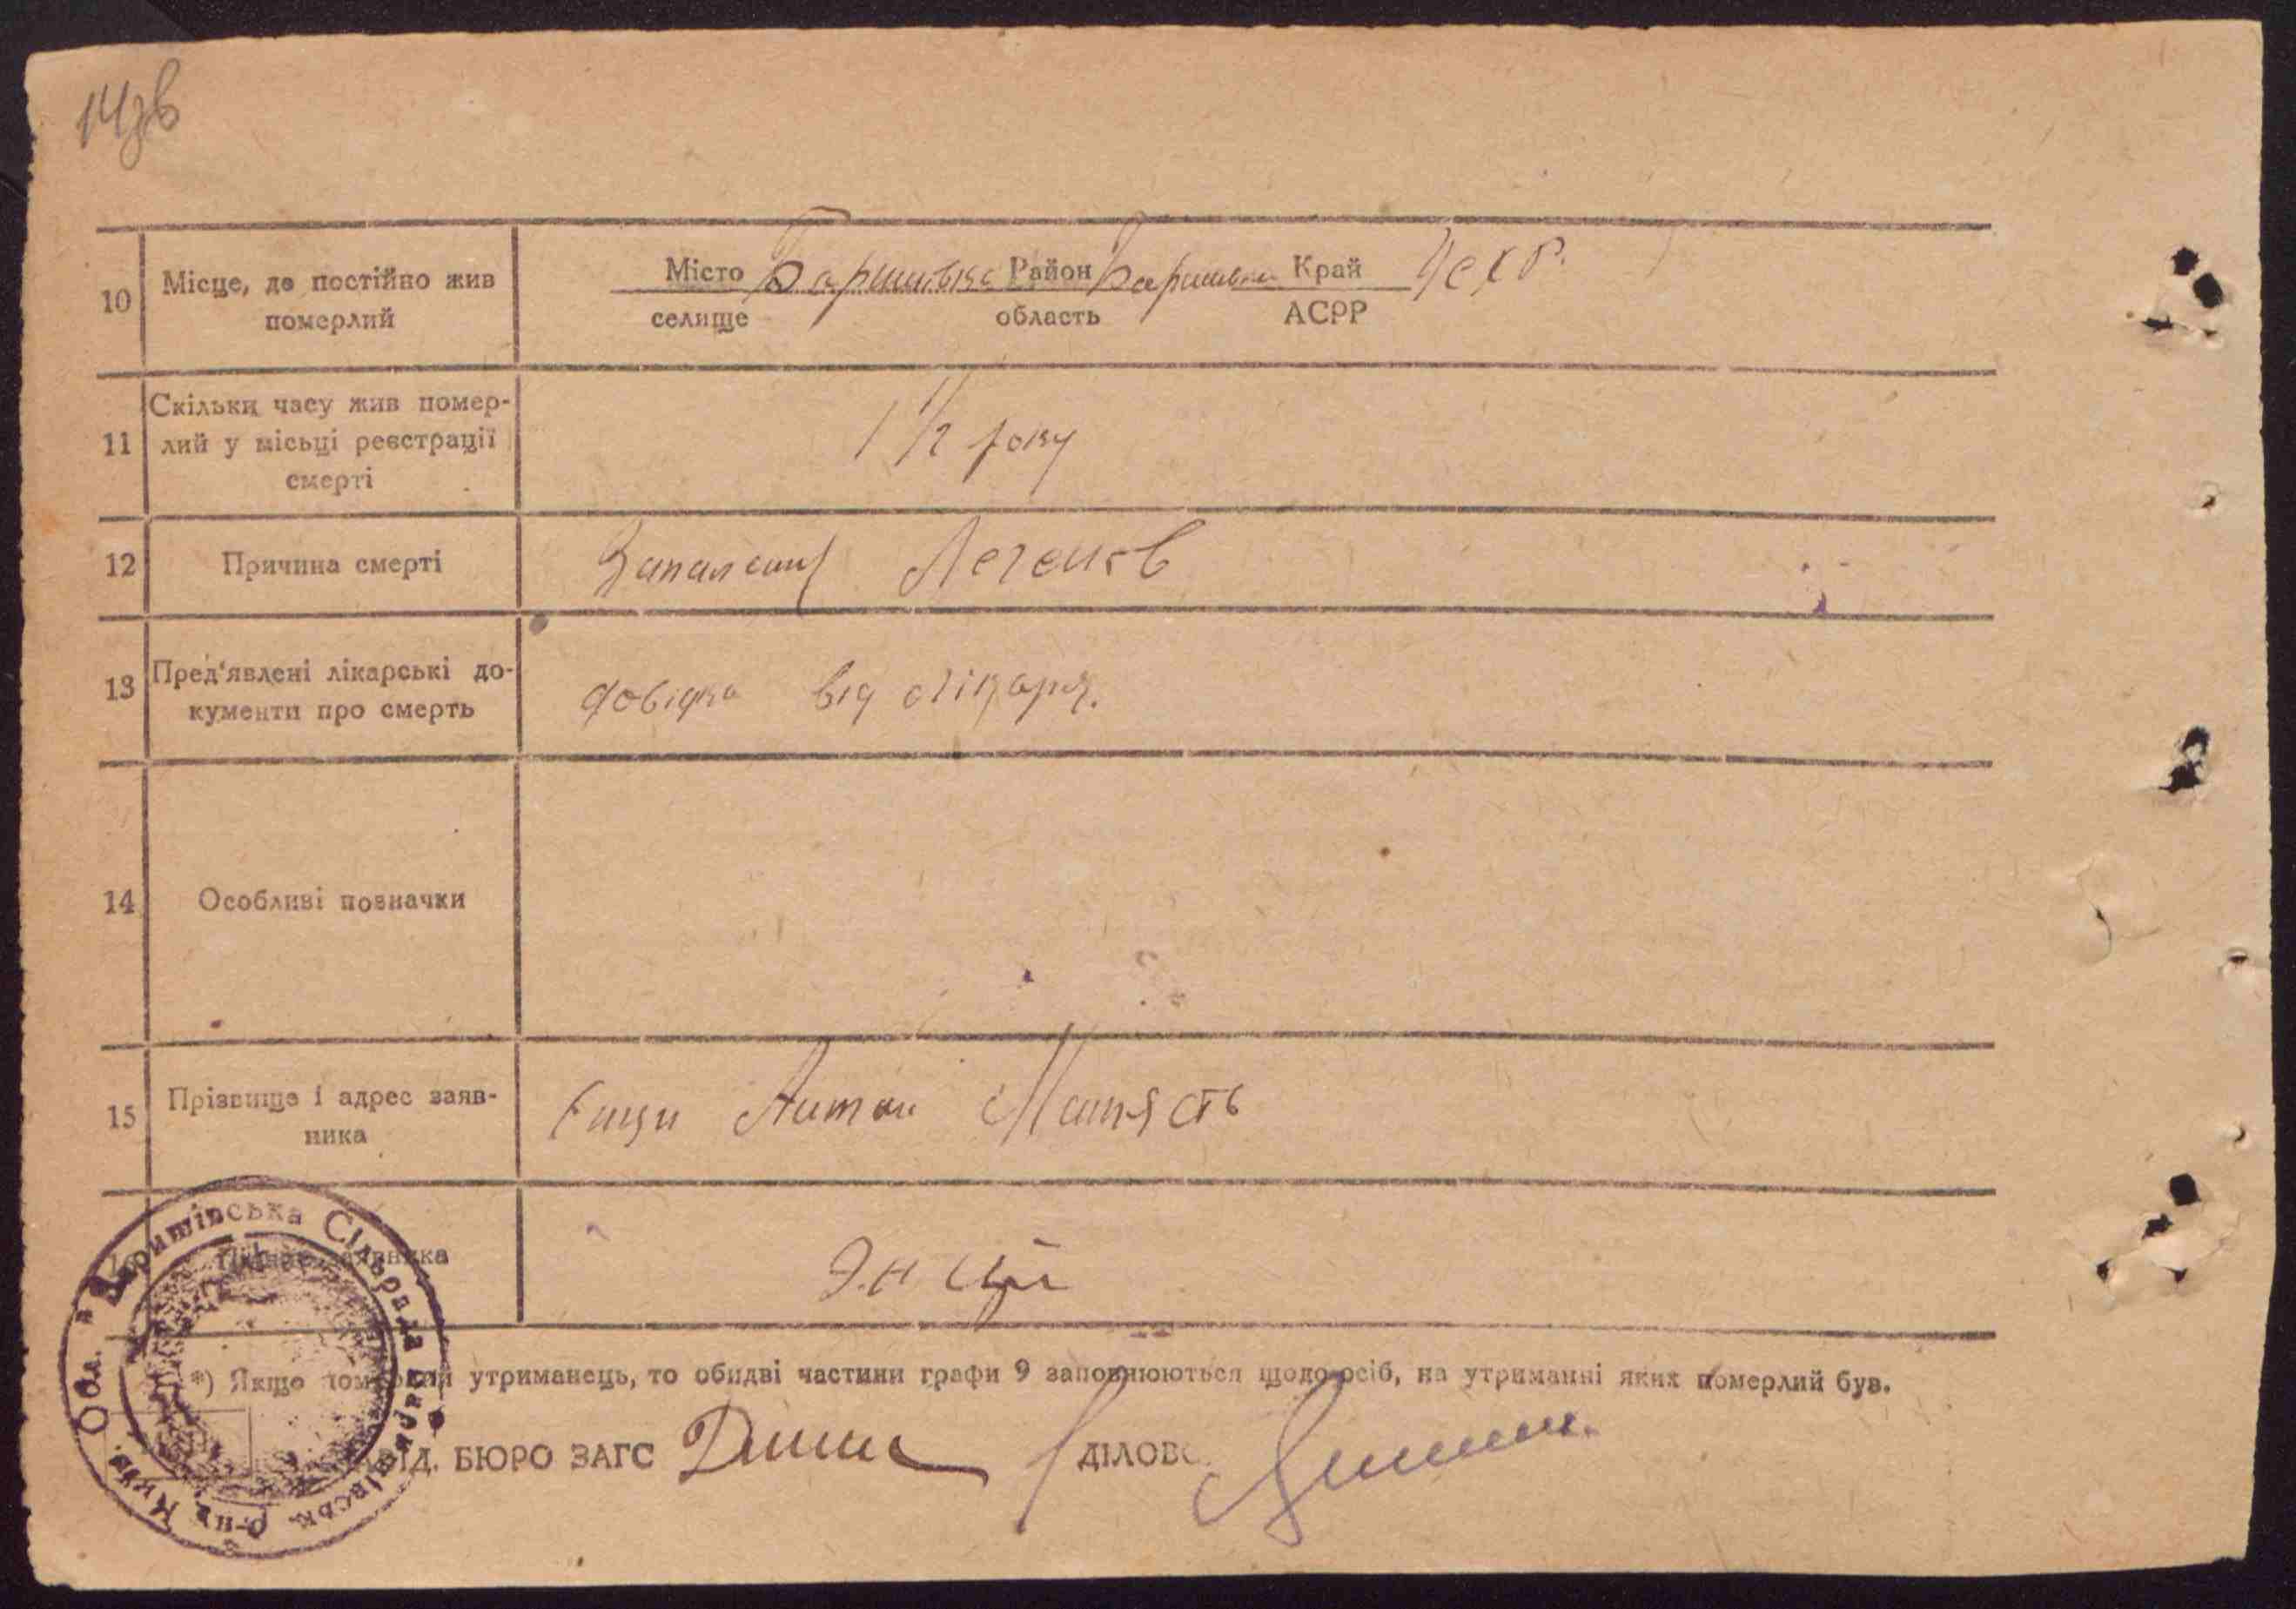 14зв
10 Місце, де постійно жив померлий
Місто Баришівка Район Баришівка Край УСРР.
селище область АСРР
11 Скільки часу жив помер-
лий у місьці реєстрації
смерті
1 1/2 року
12 Причина смерті
Запаленя Легенів
13 Пред'явлені лікарські до-
кументи про смерть
довідка від лікаря.
14 Особливі позначки
15 Прізвище і адрес заяв-
ника
Антон
Підпис заявника
*) Якщо померлий утриманець, то обидві частини графи 9 заповнюються щодо осіб, на утриманні яких померлий був.
ЗАВІД. БЮРО ЗАГС
ДІЛОВ
Баришівська Сільрада Баришівськ. р-на Київ. Обл.